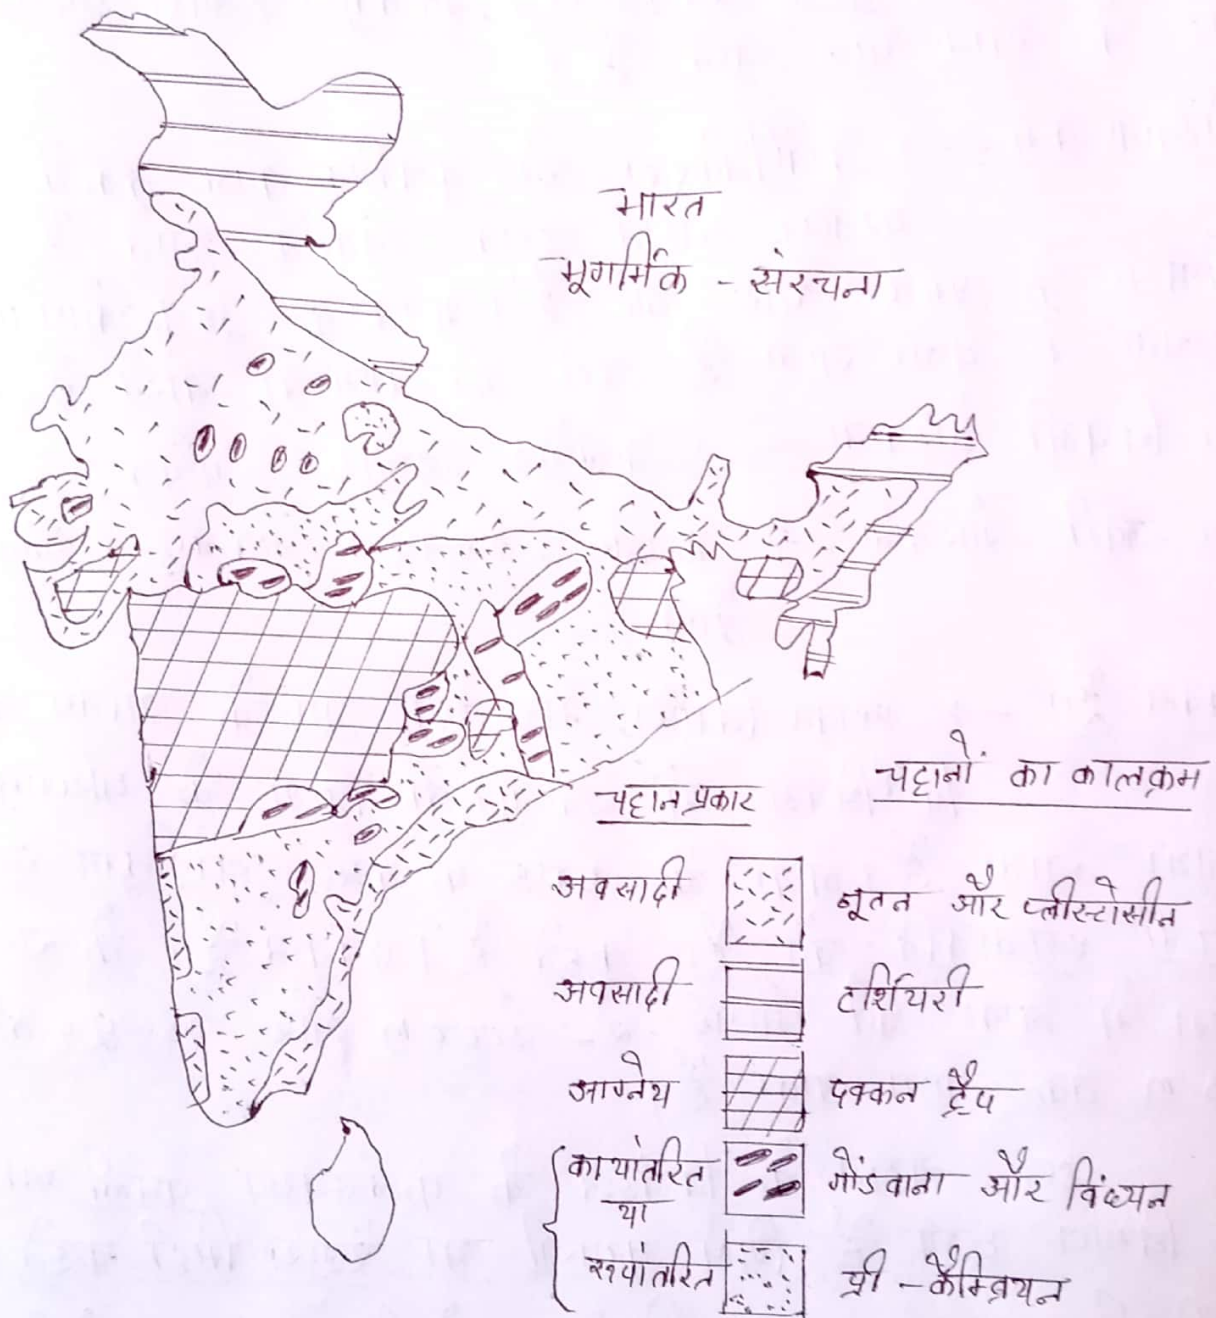 भारत
भूगर्भिक - संरचना
चट्टान प्रकार
चट्टानों का कालक्रम
अवसादी नूतन और प्लीस्टोसीन
अवसादी टर्शियरी
आग्नेय दक्कन ट्रैप
कायांतरित गोंडवाना और विंध्यन
या
रूपांतरित प्री - कैम्ब्रियन